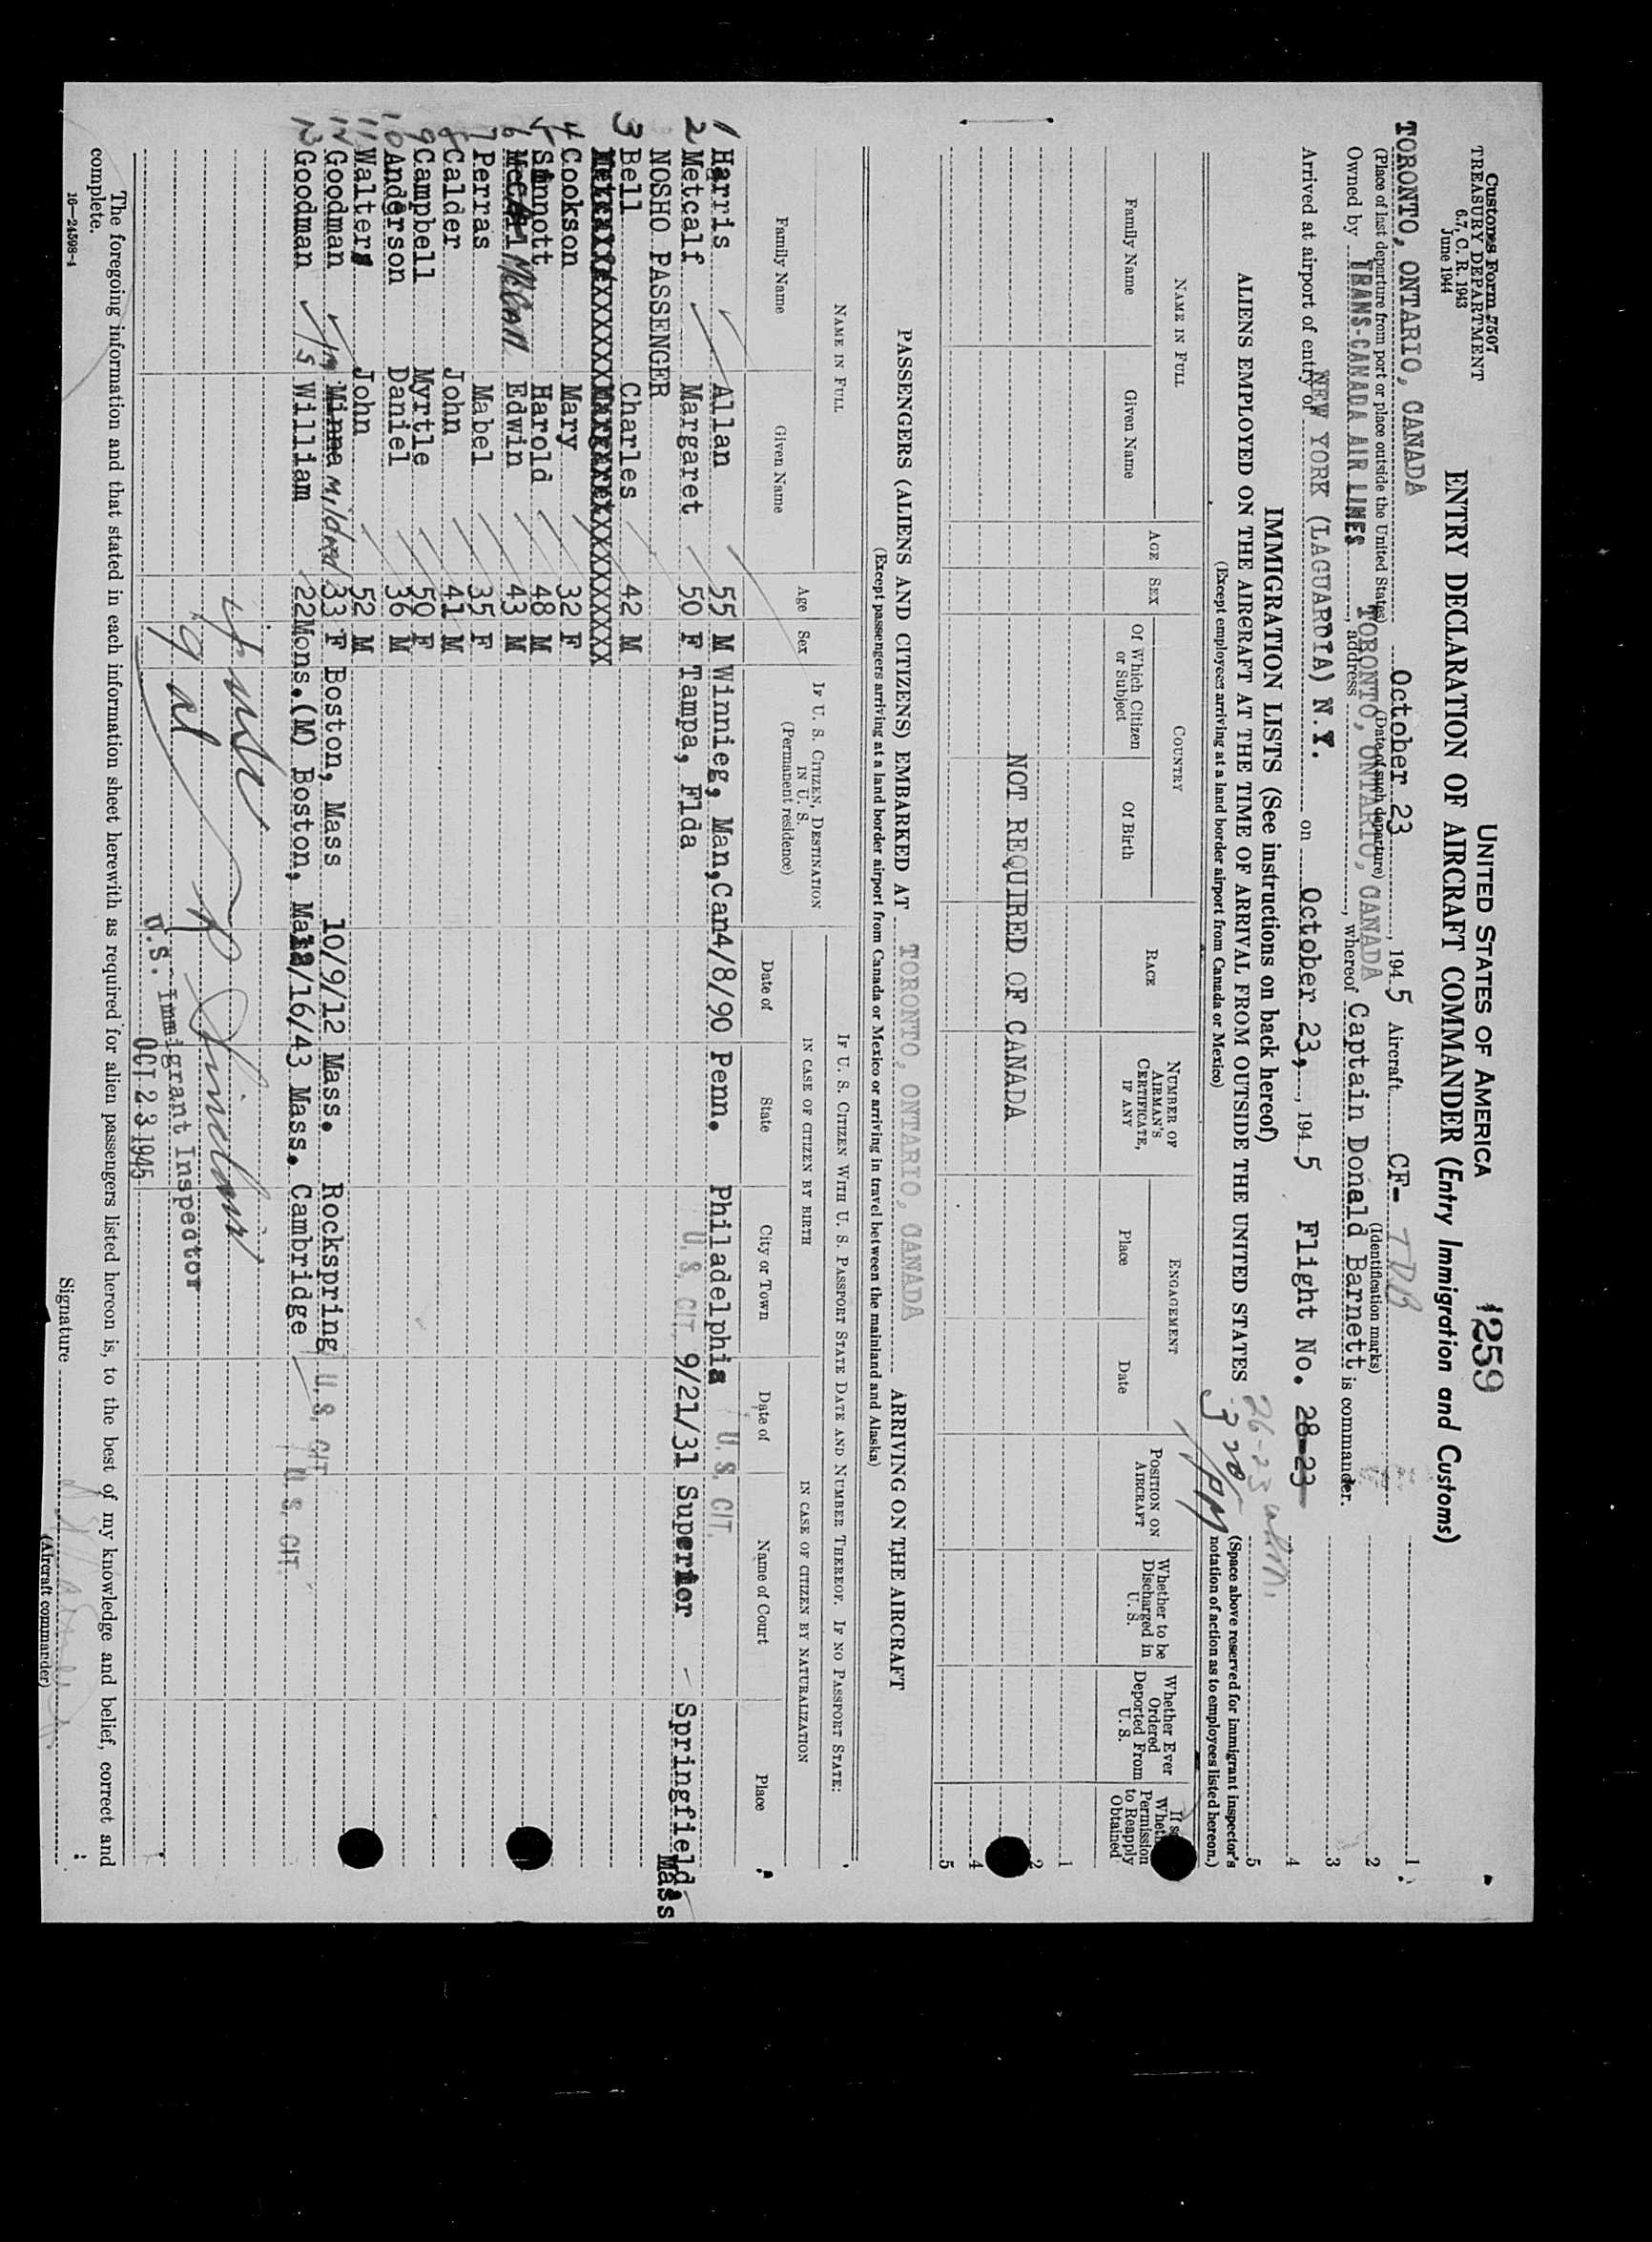 Customs Form 7507
TREASURY DEPARTMENT
6.7, C. R. 1943
June 1944
UNITED STATES OF AMERICA
1259
ENTRY DECLARATION OF AIRCRAFT COMMANDER (Entry Immigration and Customs)
TORONTO, ONTARIO, CANADA October 23, 1945 Aircraft CF- TDB
(Place of last departure from port or place outside the United States) (Date of such departure) (Identification marks)
Owned by TRANS-CANADA AIR LINES, address TORONTO, ONTARIO, CANADA, whereof Captain Donald Barnett is commander.
Arrived at airport of entry of NEW YORK (LAGUARDIA) N.Y. on October 23, 1945 Flight No. 28-23
26-23
320
PM
1
2
3
4
5
(Space above reserved for immigrant inspector's notation of action as to employees listed hereon.)
IMMIGRATION LISTS (See instructions on back hereof)
ALIENS EMPLOYED ON THE AIRCRAFT AT THE TIME OF ARRIVAL FROM OUTSIDE THE UNITED STATES
(Except employees arriving at a land border airport from Canada or Mexico)
NAME IN FULL
Family Name
Given Name
AGE
SEX
COUNTRY
Of Which Citizen or Subject
Of Birth
RACE
NUMBER OF AIRMAN'S CERTIFICATE, IF ANY
ENGAGEMENT
Place
Date
POSITION ON AIRCRAFT
Whether to be Discharged in U. S.
Whether Ever Ordered Deported From U. S.
If so Permission to Reapply Obtained
1
2
NOT REQUIRED OF CANADA
4
5
PASSENGERS (ALIENS AND CITIZENS) EMBARKED AT TORONTO, ONTARIO, CANADA ARRIVING ON THE AIRCRAFT
(Except passengers arriving at a land border airport from Canada or Mexico or arriving in travel between the mainland and Alaska)
NAME IN FULL
Family Name
Given Name
Age
Sex
IF U. S. CITIZEN, DESTINATION IN U. S.
(Permanent residence)
IF U. S. CITIZEN WITH U. S. PASSPORT STATE DATE AND NUMBER THEREOF. IF NO PASSPORT STATE:
IN CASE OF CITIZEN BY BIRTH
IN CASE OF CITIZEN BY NATURALIZATION
Date of
State
City or Town
Date of
Name of Court
Place
1 Harris Allan 55 M Winnieg, Man,Can4/8/90 Penn. Philadelphia U. S. CIT.
2 Metcalf Margaret 50 F Tampa, Flda U. S. CIT. 9/21/31 Superior Springfield, Mass
NOSHO PASSENGER
3 Bell Charles 42 M
4 Cookson Mary 32 F
5 Sinnott Harold 48 M
6 McCall Edwin 43 M
7 Perras Mabel 35 F
8 Calder John 41 M
9 Campbell Myrtle 50 F
10 Anderson Daniel 36 M
11 Walters John 52 M
12 Goodman Minna Mildred 33 F Boston, Mass 10/9/12 Mass. Rockspring U. S. CIT.
13 Goodman William 22Mons.(M) Boston, Ma12/16/43 Mass. Cambridge U. S. CIT.
U.S. Immigrant Inspector
OCT 23 1945
The foregoing information and that stated in each information sheet herewith as required for alien passengers listed hereon is, to the best of my knowledge and belief, correct and complete.
Signature
(Aircraft commander)
16—24598-4